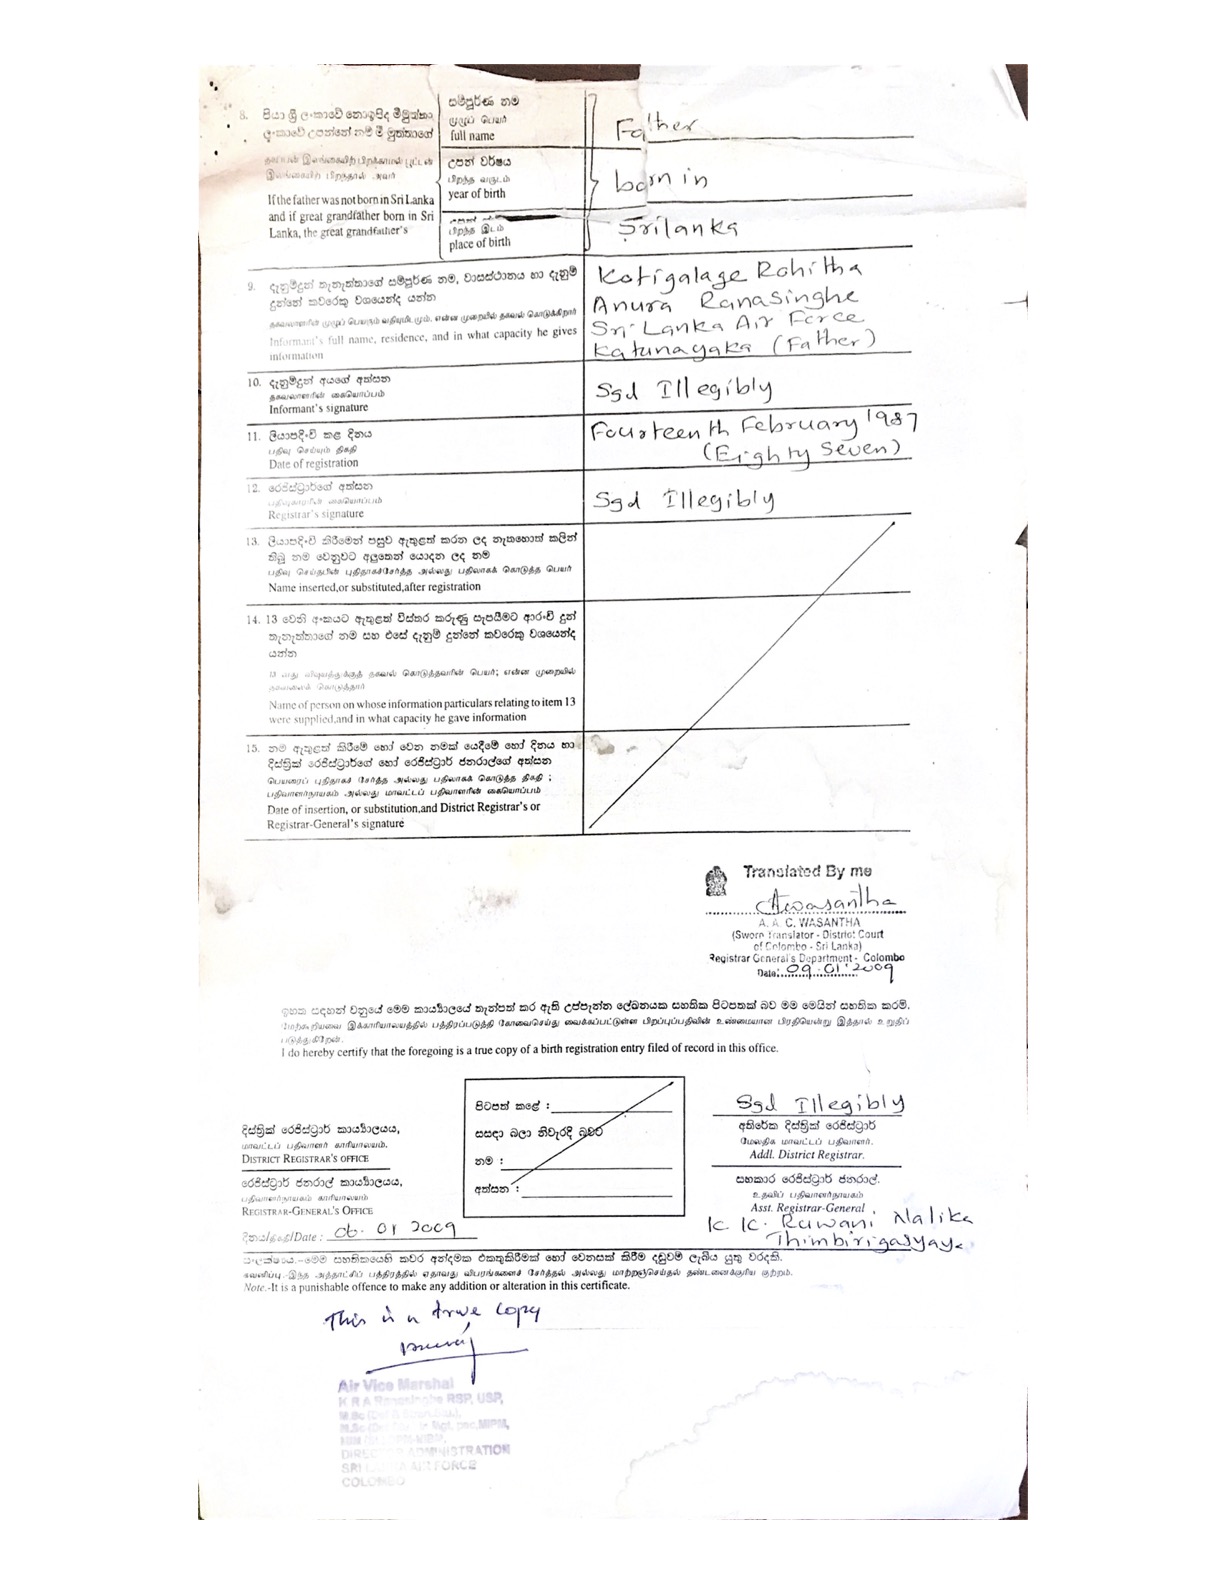 8. පියා ශ්‍රී ලංකාවේ නොඉපිද මීමුත්තා ලංකාවේ උපන්නේ නම් මී මුත්තාගේ
தகப்பன் இலங்கையிற் பிறக்காமல் பூட்டன் இலங்கையிற் பிறந்தால் அவர்
If the father was not born in Sri Lanka
and if great grandfather born in Sri
Lanka, the great grandfather's
සම්පූර්ණ නම
முழுப் பெயர்
full name
Father
උපන් වර්ෂය
பிறந்த வருடம்
year of birth
born in
பிறந்த இடம்
place of birth
Srilanka
9. දැනුම්දුන් තැනැත්තාගේ සම්පූර්ණ නම, වාසස්ථානය හා දැනුම්
දුන්නේ කවරෙකු වශයෙන්ද යන්න
தகவலாளரின் முழுப் பெயரும் வதிவுமிடமும், என்ன முறையில் தகவல் கொடுக்கிறார்
Informant's full name, residence, and in what capacity he gives
information
Kotigalage Rohitha
Anura Ranasinghe
Sri Lanka Air Force
Katunayaka (Father)
10. දැනුම්දුන් අයගේ අත්සන
தகவலாளரின் கையொப்பம்
Informant's signature
Sgd Illegibly
11. ලියාපදිංචි කළ දිනය
பதிவு செய்யும் திகதி
Date of registration
Fourteenth February 1987
(Eighty Seven)
12. රෙජිස්ට්‍රාර්ගේ අත්සන
பதிவுகாரரின் கையொப்பம்
Registrar's signature
Sgd Illegibly
13. ලියාපදිංචි කිරීමෙන් පසුව ඇතුළත් කරන ලද නැතහොත් කලින්
තිබූ නම වෙනුවට අලුතෙන් යොදන ලද නම
பதிவு செய்தபின் புதிதாகச்சேர்த்த அல்லது பதிலாகக் கொடுத்த பெயர்
Name inserted,or substituted,after registration
14. 13 වෙනි අංකයට ඇතුළත් විස්තර කරුණු සැපයීමට ආරංචි දුන්
තැනැත්තාගේ නම සහ එසේ දැනුම් දුන්නේ කවරෙකු වශයෙන්ද
යන්න
13 வது விடயத்துக்குத் தகவல் கொடுத்தவரின் பெயர்; என்ன முறையில்
தகவலைக் கொடுத்தார்
Name of person on whose information particulars relating to item 13
were supplied,and in what capacity he gave information
15. නම ඇතුළත් කිරීමේ හෝ වෙන නමක් යෙදීමේ හෝ දිනය හා
දිස්ත්‍රික් රෙජිස්ට්‍රාර්ගේ හෝ රෙජිස්ට්‍රාර් ජනරාල්ගේ අත්සන
பெயரைப் புதிதாகச் சேர்த்த அல்லது பதிலாகக் கொடுத்த திகதி ;
பதிவாளர்நாயகம் அல்லது மாவட்டப் பதிவாளரின் கையொப்பம்
Date of insertion, or substitution,and District Registrar's or
Registrar-General's signature
Translated By me
A. A. C. WASANTHA
(Sworn Translator - District Court
of Colombo - Sri Lanka)
Registrar General's Department - Colombo
Date: 09.01.2009
ඉහත සඳහන් වනුයේ මෙම කාර්‍යාලයේ තැන්පත් කර ඇති උප්පැන්න ලේඛනයක සහතික පිටපතක් බව මම මෙයින් සහතික කරමි.
மேற்கூறியவை இக்காரியாலயத்தில் பத்திரப்படுத்தி கோவைசெய்து வைக்கப்பட்டுள்ள பிறப்புப்பதிவின் உண்மையான பிரதியென்று இத்தால் உறுதிப்
படுத்துகிறேன்.
I do hereby certify that the foregoing is a true copy of a birth registration entry filed of record in this office.
දිස්ත්‍රික් රෙජිස්ට්‍රාර් කාර්‍යාලයය,
மாவட்டப் பதிவாளர் காரியாலயம்.
DISTRICT REGISTRAR'S OFFICE
රෙජිස්ට්‍රාර් ජනරාල් කාර්‍යාලයය,
பதிவாளர்நாயகம் காரியாலயம்
REGISTRAR-GENERAL'S OFFICE
දිනය/திகதி/Date : 06.01 2009
පිටපත් කළේ :
සසඳා බලා නිවැරදි බවට
නම :
අත්සන :
Sgd Illegibly
අතිරේක දිස්ත්‍රික් රෙජිස්ට්‍රාර්
மேலதிக மாவட்டப் பதிவாளர்.
Addl. District Registrar.
සහකාර රෙජිස්ට්‍රාර් ජනරාල්.
உதவிப் பதிவாளர்நாயகம்
Asst. Registrar-General
K. K. Ruwani Nalika
Thimbirigasyaya
සැලකිය.–මෙම සහතිකයෙහි කවර අන්දමක එකතුකිරීමක් හෝ වෙනසක් කිරීම දඬුවම් ලැබිය යුතු වරදකි.
கவனிப்பு.-இந்த அத்தாட்சிப் பத்திரத்தில் ஏதாவது விபரங்களைச் சேர்த்தல் அல்லது மாற்றஞ்செய்தல் தண்டனைக்குரிய குற்றம்.
Note.-It is a punishable offence to make any addition or alteration in this certificate.
This is a true copy
Air Vice Marshal
K R A Ranasinghe RSP, USP,
DIRECTOR ADMINISTRATION
SRI LANKA AIR FORCE
COLOMBO